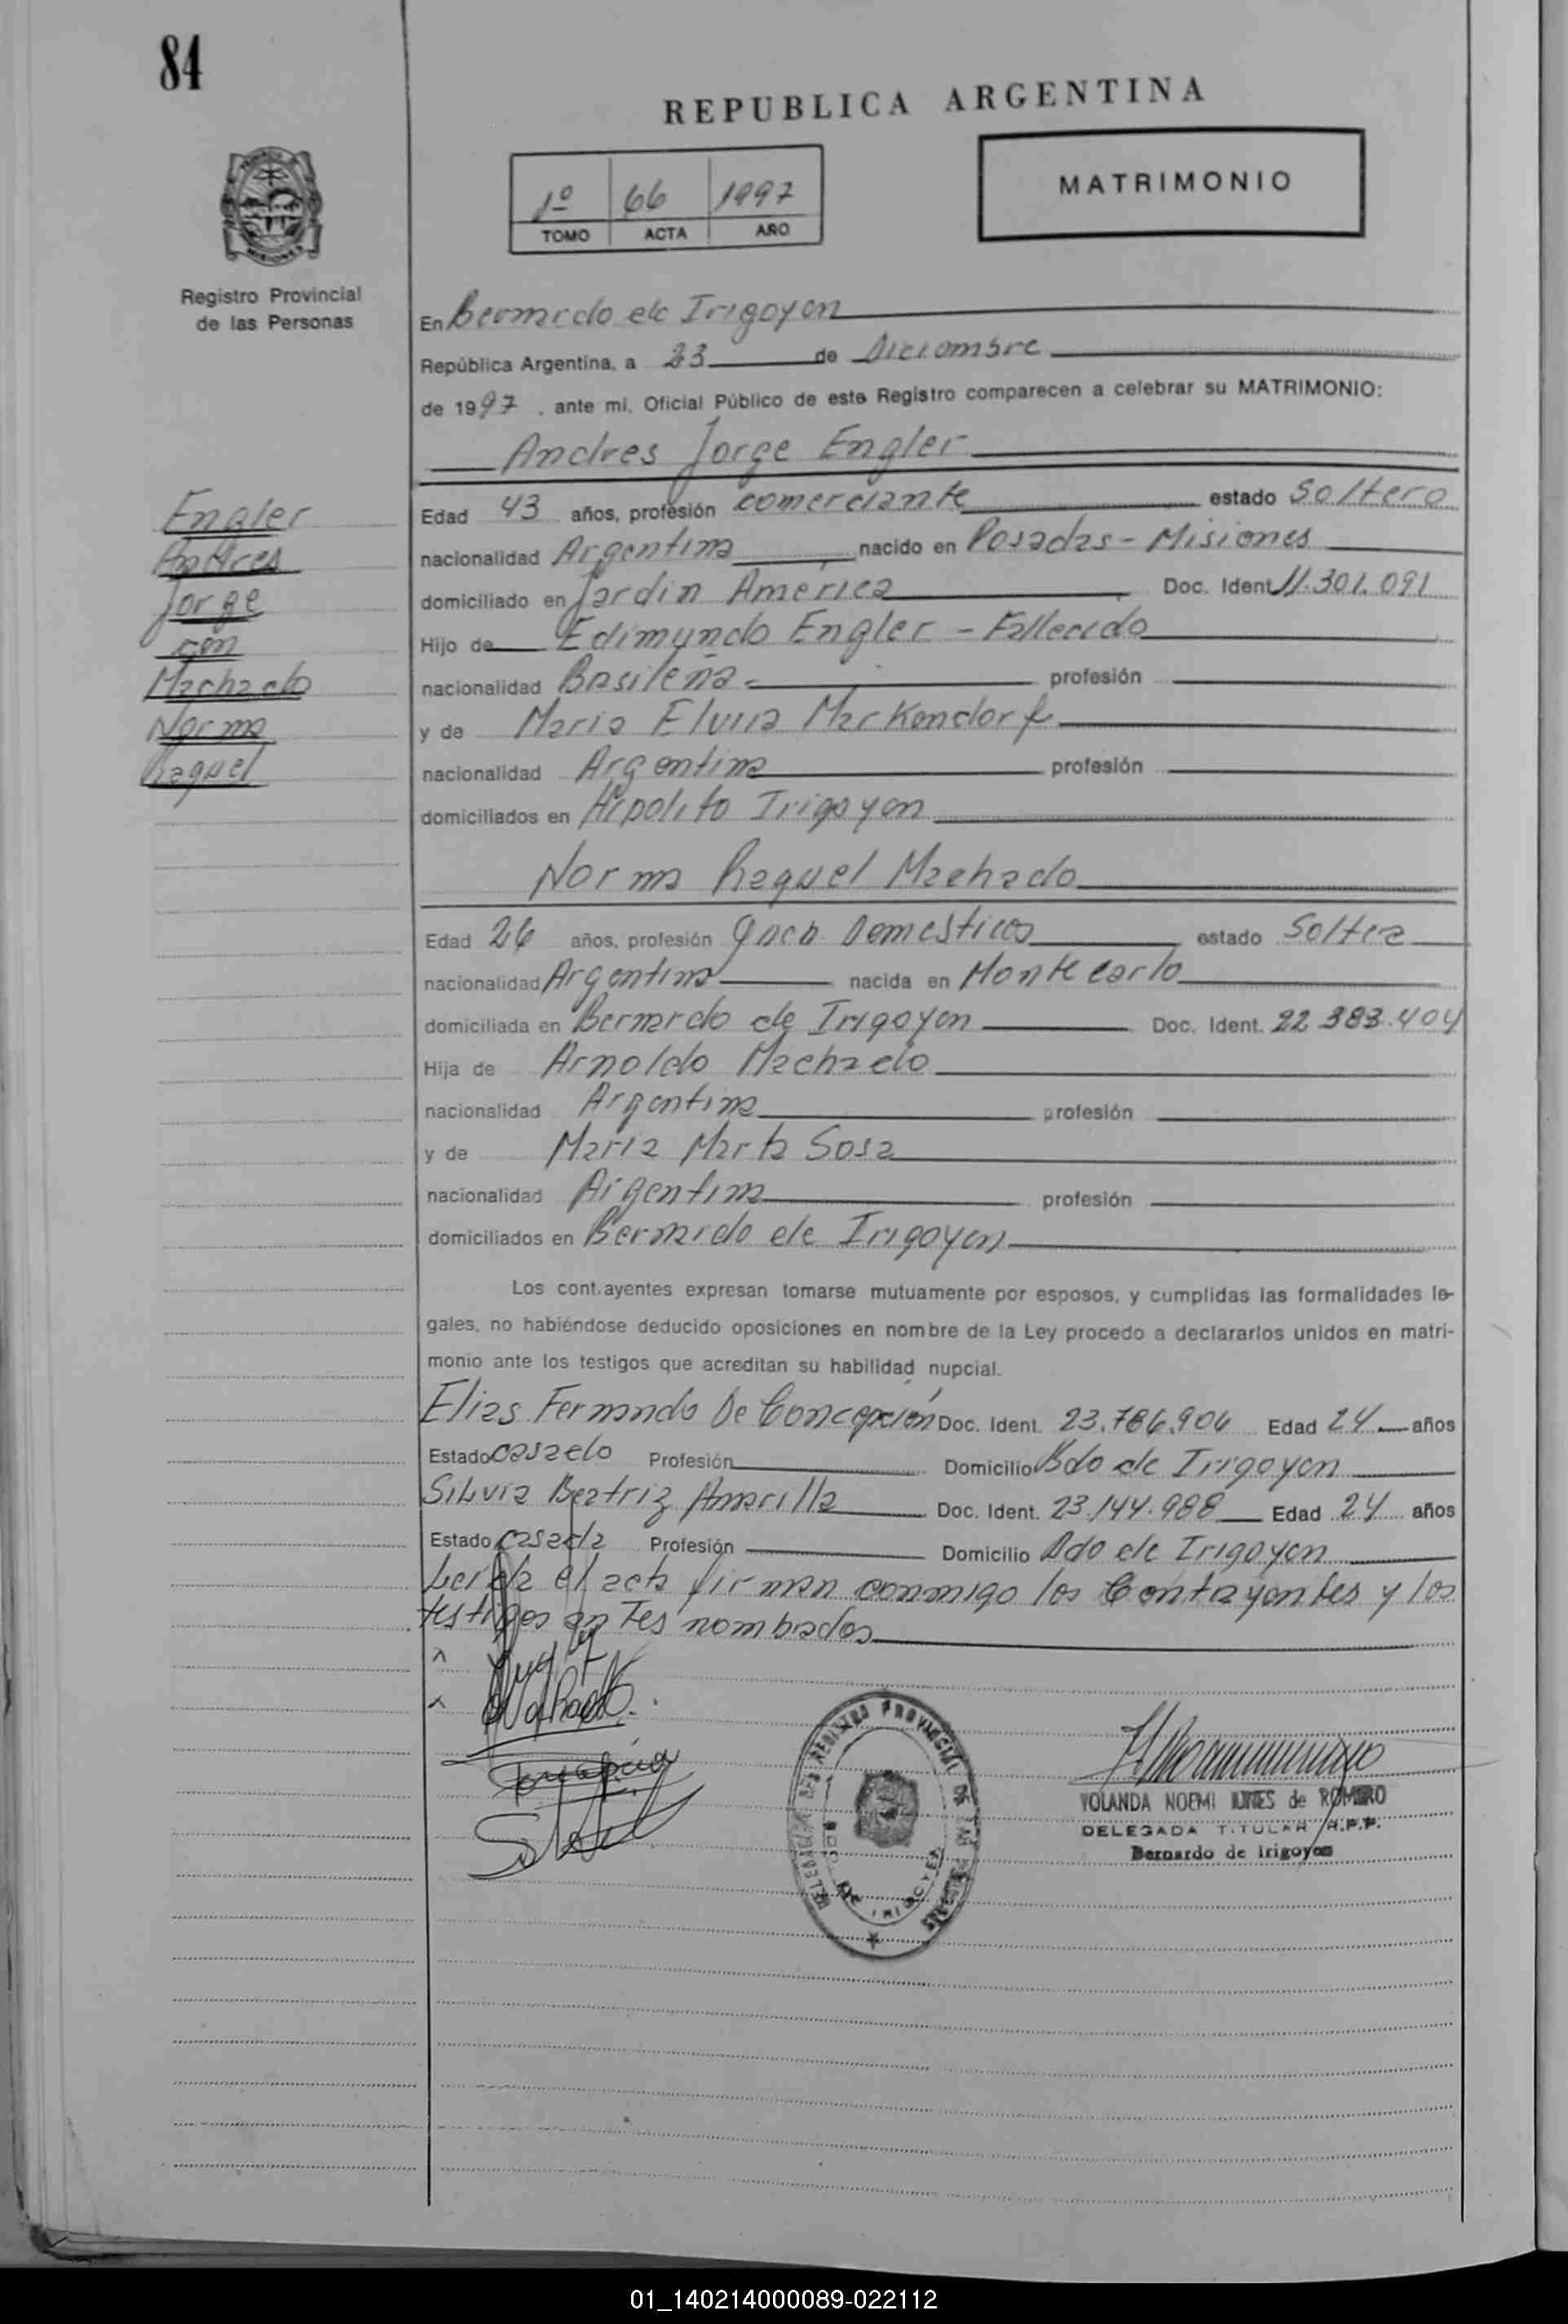 84
REPUBLICA ARGENTINA
1º 66 1997
TOMO ACTA AÑO
MATRIMONIO
Registro Provincial
de las Personas
Engler
Andres
Jorge
con
Machado
Norma
Raquel
En Bernardo de Irigoyen
República Argentina, a 23 de Diciembre
de 1997, ante mi, Oficial Público de este Registro comparecen a celebrar su MATRIMONIO:
Andres Jorge Engler
Edad 43 años, profesión comerciante estado Soltero
nacionalidad Argentina nacido en Posadas - Misiones
domiciliado en Jardin America Doc. Ident. 11.301.091
Hijo de Edimundo Engler - Fallecido
nacionalidad Basileña profesión
y de Maria Elvira Markendorf
nacionalidad Argentina profesión
domiciliados en Hipolito Irigoyen
Norma Raquel Machado
Edad 26 años, profesión Domesticos estado Soltera
nacionalidad Argentina nacida en Monte Carlo
domiciliada en Bernardo de Irigoyen Doc. Ident. 22.383.404
Hija de Arnoldo Machado
nacionalidad Argentina profesión
y de Maria Marta Sosa
nacionalidad Argentina profesión
domiciliados en Bernardo de Irigoyen
Los cont.ayentes expresan tomarse mutuamente por esposos, y cumplidas las formalidades le-
gales, no habiéndose deducido oposiciones en nombre de la Ley procedo a declararlos unidos en matri-
monio ante los testigos que acreditan su habilidad nupcial.
Elias Fernando De Concepción Doc. Ident. 23.786.906 Edad 24 años
Estado casado Profesión Domicilio Bdo de Irigoyen
Silvia Beatriz Amarilla Doc. Ident. 23.144.988 Edad 24 años
Estado casada Profesión Domicilio Bdo de Irigoyen
Leida el acta firman conmigo los Contrayentes y los
testigos antes nombrados
DELEGACION DEL REGISTRO PROVINCIAL DE LAS PERSONAS
BDO. DE IRIGOYEN
YOLANDA NOEMI NUNES de ROMERO
DELEGADA TITULAR R.P.P.
Bernardo de Irigoyen
01_140214000089-022112